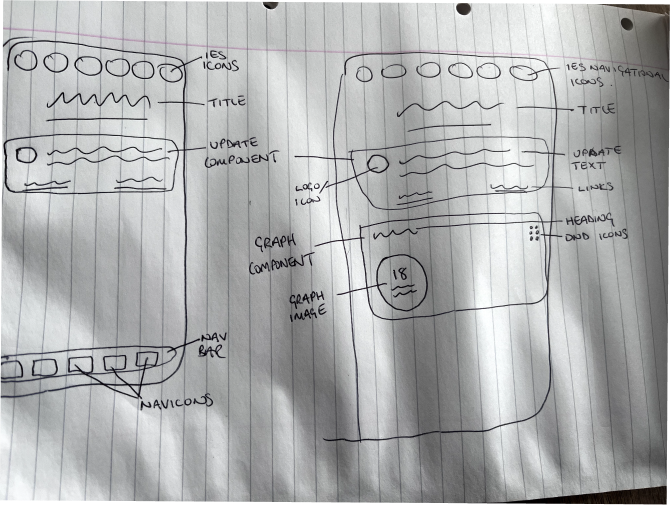 IES
ICONS
TITLE
UPDATE
COMPONENT
NAV
BAR
NAVICONS
IES NAVIGATIONAL
ICONS.
TITLE
UPDATE
TEXT
LOGO/
ICON
LINKS
HEADING
DND ICONS
GRAPH
COMPONENT
18
GRAPH
IMAGE